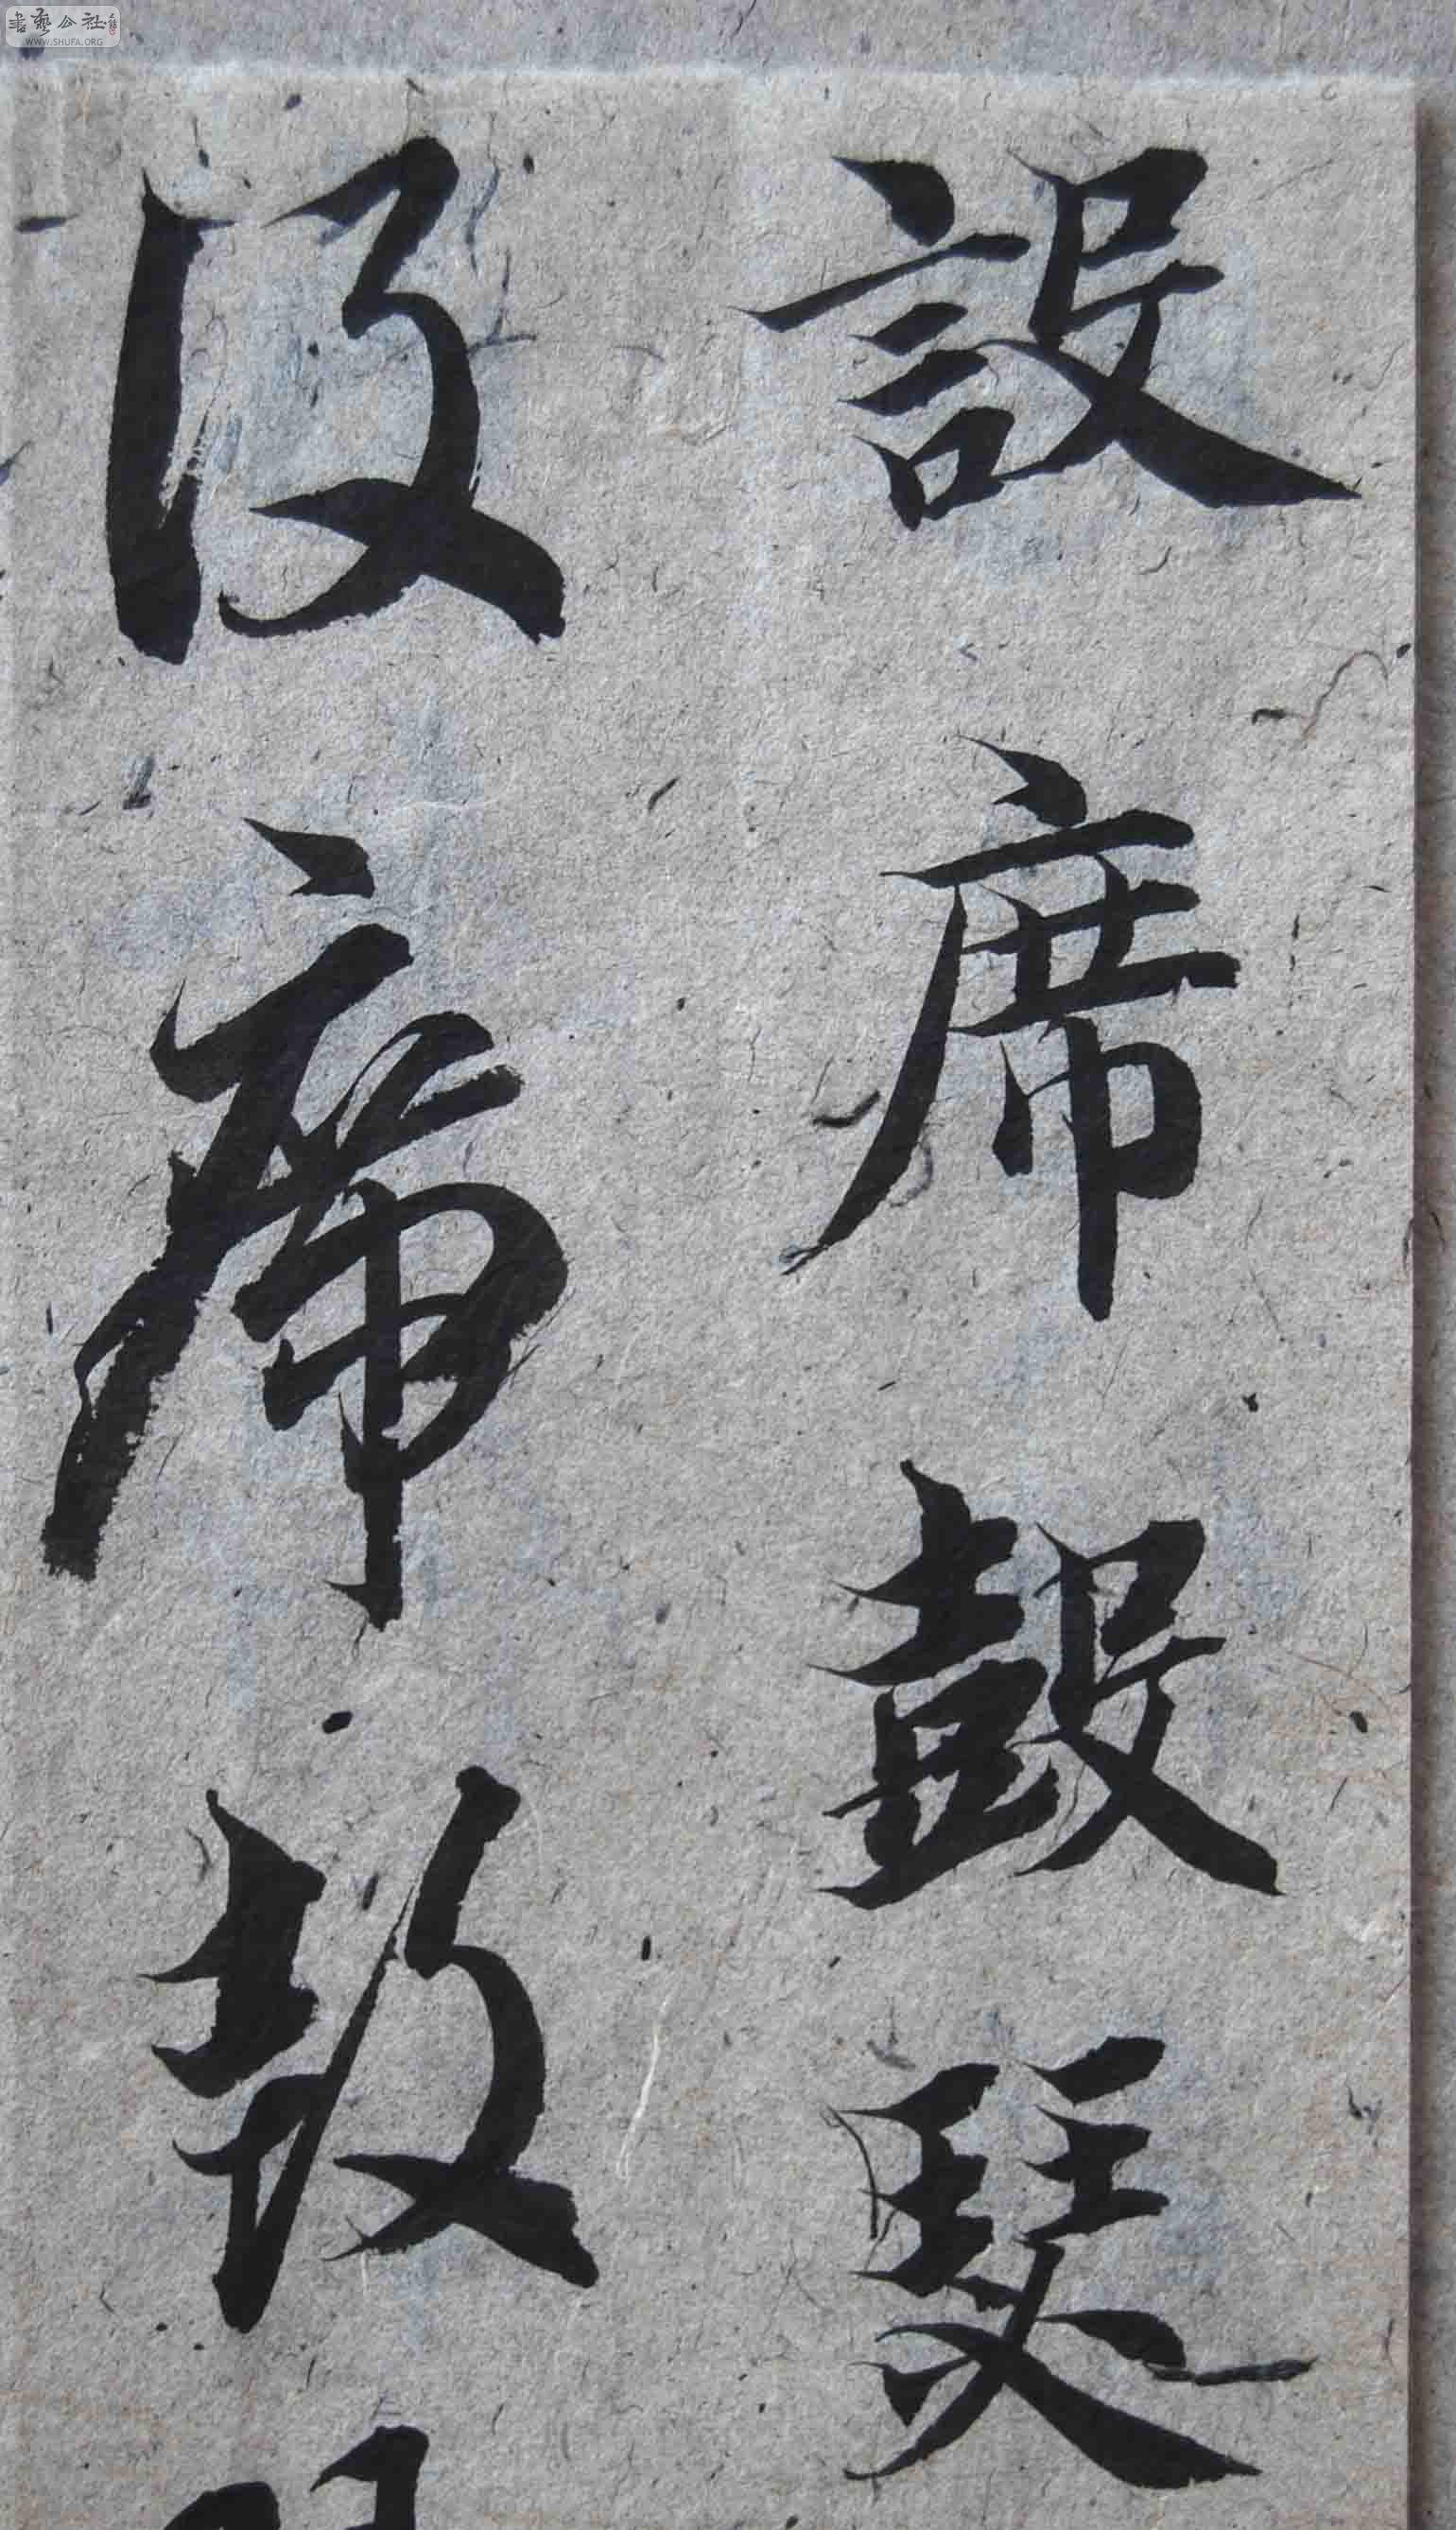 設席鼓瑟
設席鼓
書藝公社
WWW.SHUFA.ORG